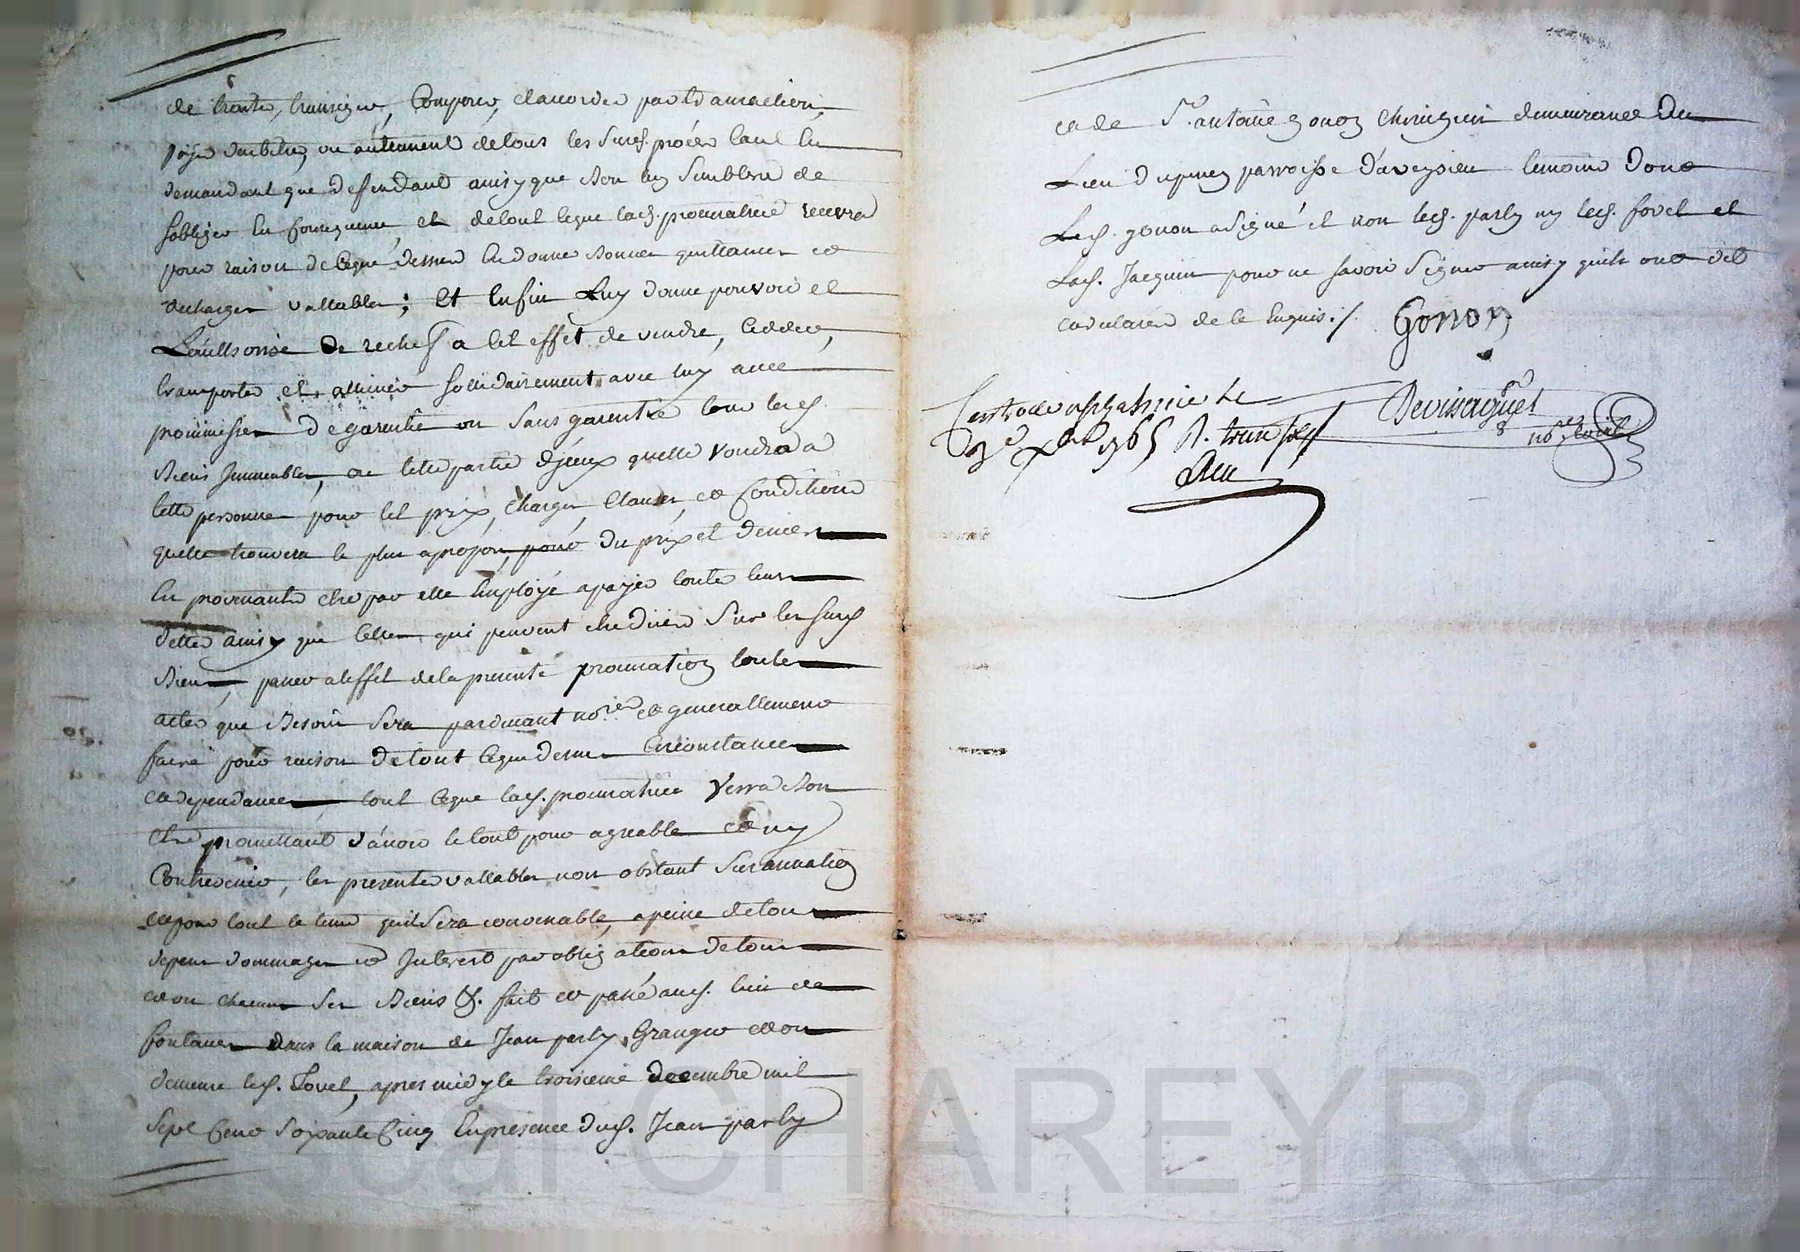 de traiter, transiger, Composer, daccorder par transaction,
payer darbitre, ou autrement de tous les susd. procès tant En
demandant que deffendant ainsy que Bon luy Semblera de
sobliger En Consequence, et de tout ceque lad. procuratrice recevra
pour raison de Ceque dessus En donner Bonnes quittances et
decharges vallables; et Enfin Luy donne pouvoir et
Lauthorise de rechef a Cet effet de vendre, Ceder,
transporter et alliener sollidairement avec luy avec
promission de garentie ou Sans garentie tous lesd.
Biens Immeubles, ou telle partie d'jceux quelle voudra a
telle personne pour tel prix, charges, Clauses, et Conditions
quelle trouvera le plus apropos, pour du prix et deniers
En provenants être par elle Employé a payer toutes leurs
dettes ainsy que Celles qui peuvent être düers Sur les susd.
Biens, passer a leffet de la presente procuration toutes
actes que Besoin Sera pardevant nore. et generallement
faire pour raison de tout Ceque dessus Circonstances
et dependances tout Ceque lad. procuratrice verra Bon
être promettant d'avoir le tout pour agreable et ny
Contrevenir, les presentes vallables non obstant Surannation
et pour tout le tems quil Sera convenable, a peine de tous
depens dommages et Interest par obligations de tous
et un chacun Ses Biens &. fait et passé aud. lieu de
fontanes dans la maison de Jean party Granger et ou
demeure led. fovet, apres midy le troisieme decembre mil
Sept Cens Soixante Cinq En presence dud. Jean party
et de Sr. antoine gonon Chirurgien demeurant au
Lieu d'epiney parroisse d'aveysieu temoins dont
Led. gonon a Signé et non led. party ny led. fovet et
Lad. Jacquin pour ne savoir Signer ainsy quils ont dit
et declaré de ce Enquis ./.
Gonon
Devissaguet
nore. Roial
Controllé a st galmier Le
3e xbre 1765 R. treize sols